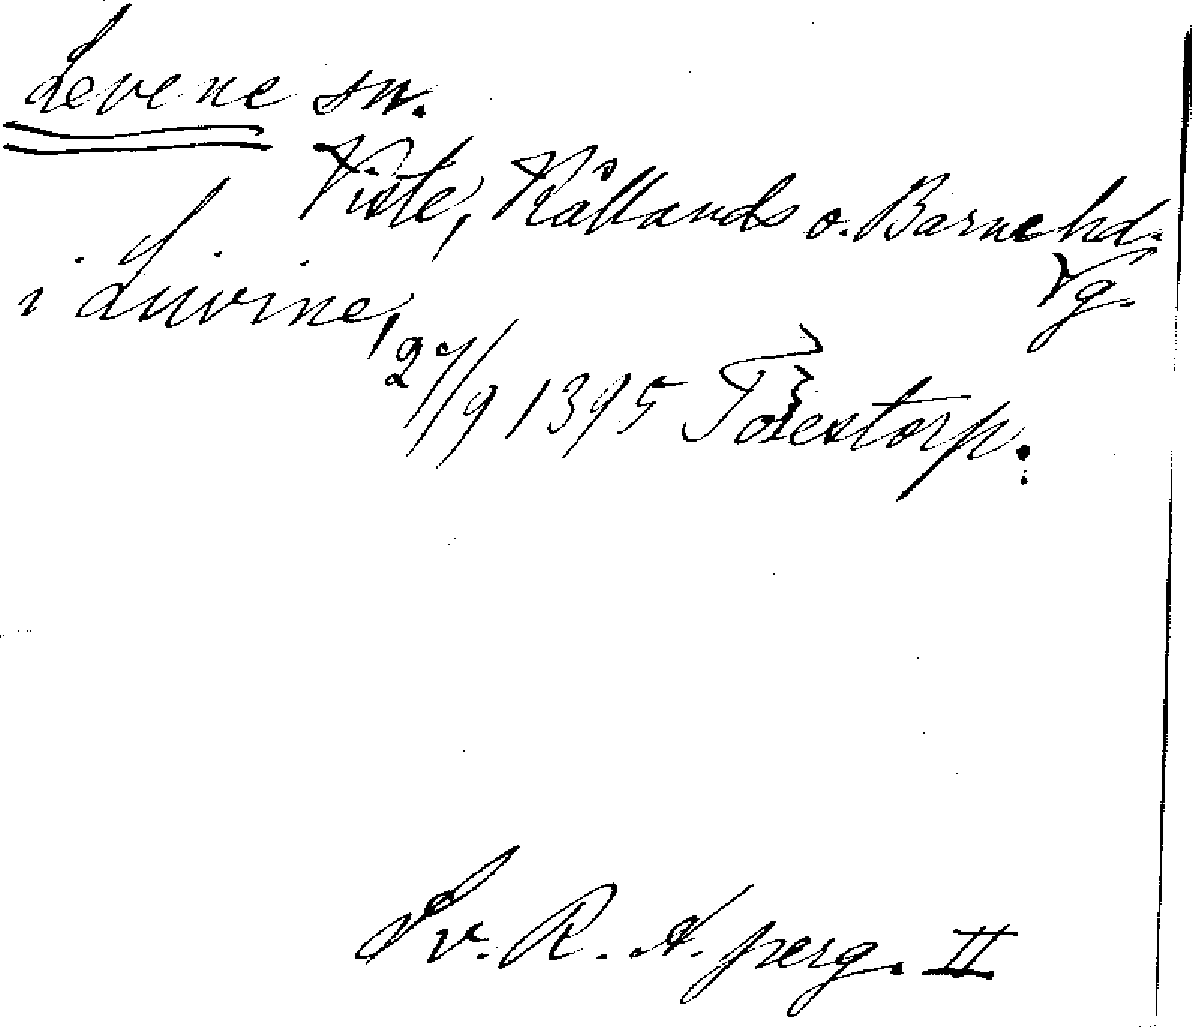 Levene sn.
Viste, Kållands o. Barne hd.
Vg.
i Liivine,
27/9 1395 Torestorp.
Sv. R. A. perg. II